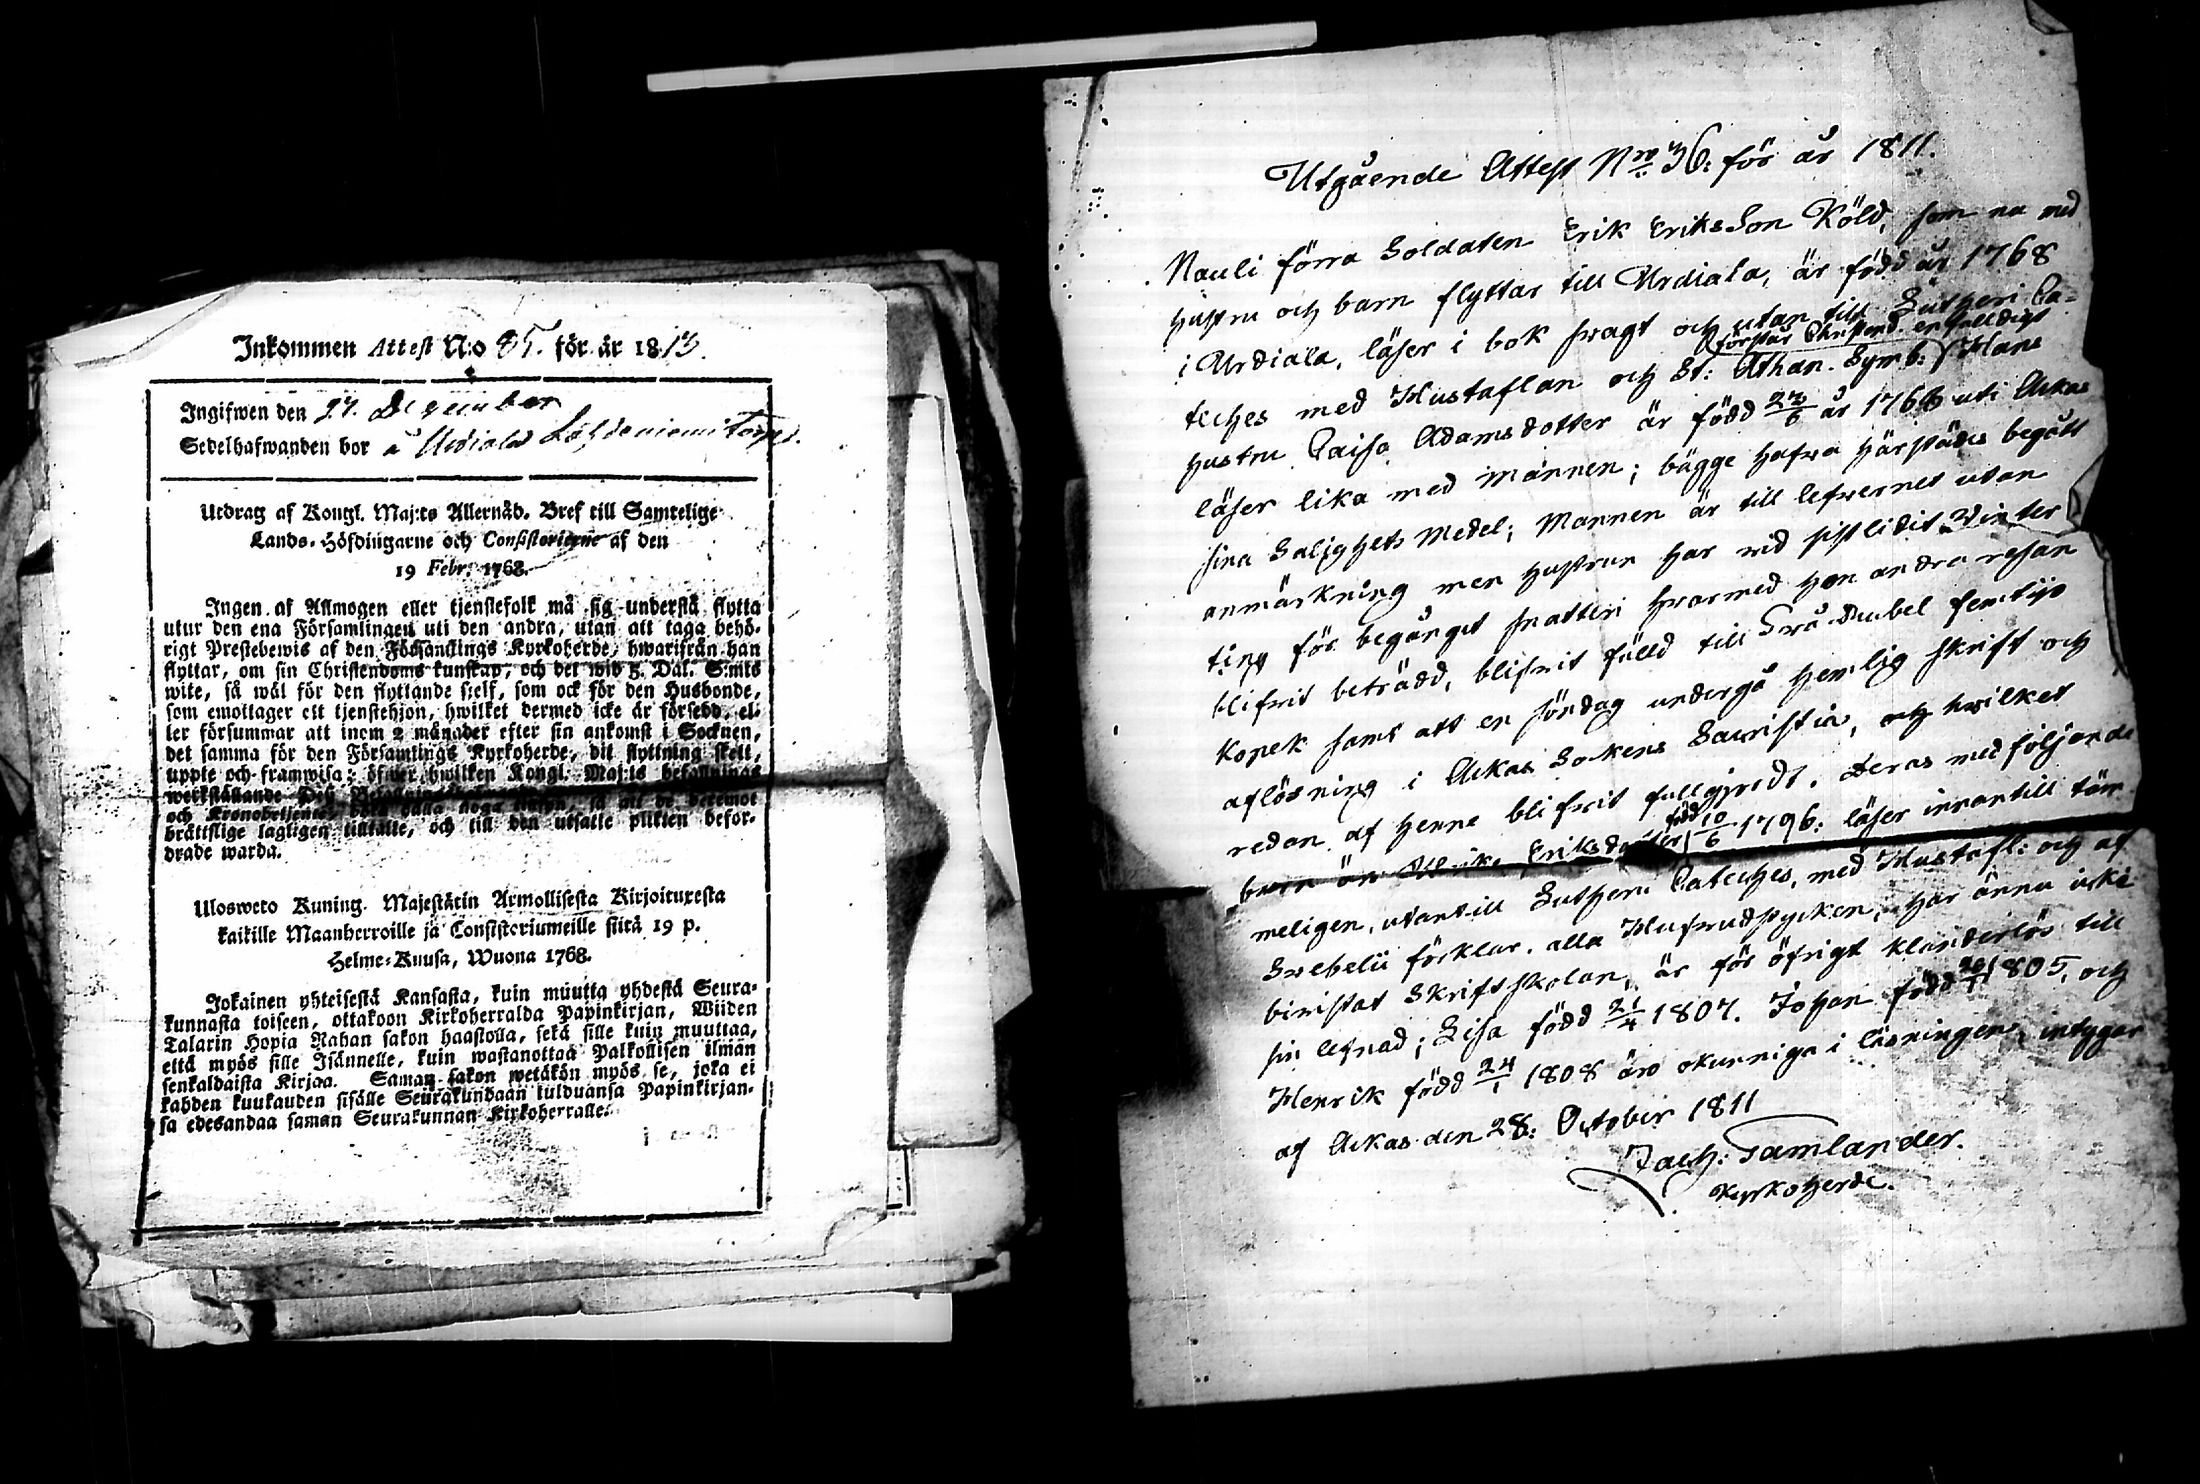 Inkommen Attest N:o 85. för år 1813.
Ingifwen den 27. December
Sedelhafwanden bor å Urdiala Torp.
Utdrag af Kongl. Maj:ts Allernåd. Bref till Samtelige
Lands-Höfdingarne och Consistorierne af den
19 Febr. 1768.
Ingen af Allmogen eller tjenstefolk må sig understå flytta
utur den ena Församlingen uti den andra, utan att taga behö-
rigt Prestebewis af den Församlings Kyrkoherde, hwarifrån han
flyttar, om sin Christendoms kunskap, och det wid 5. Dal. S:mts
wite, så wäl för den flyttande sjelf, som ock för den Husbonde,
som emottager ett tjenstehjon, hwilket dermed icke är försedd, el-
ler försummar att inom 2 månader efter sin ankomst i Socknen,
det samma för den Församlings Kyrkoherde, dit flyttning skett,
uppte och framwisa; öfwer hwilken Kongl. Maj:ts befallnings
werkställande Dess
och Kronobetjente, hålla noga så att de deremot
brättslige lagligen tilltalte, och till den utsatte plikten befor-
drade warda.
Ulosweto Kuning. Majestätin Armollisesta Kirjoituxesta
kaikille Maanherroille ja Consistoriumeille siitä 19 p.
Helme-Kuusa, Wuona 1768.
Jokainen yhteisestä Kansasta, kuin muutta yhdestä Seura-
kunnasta toiseen, ottakoon Kirkoherralda Papinkirjan, Wiiden
Talarin Hopia Rahan sakon haastolla, sekä sille kuin muuttaa,
että myös sille Isännelle, kuin wastanottaa Palkollisen ilman
senkaldaista Kirjaa. Saman sakon wetäkön myös se, joka ei
kahden kuukauden sisälle Seurakundaan tulduansa Papinkirjan-
sa edesandaa saman Seurakunnan Kirkoherralle.
Utgående Attest N:ro 36: för år 1811.
Nauli förra Soldaten Erik Eriksson Köld, som nu med
hustru och barn flyttar till Urdiala, är född år 1768
i Urdiala, läser i bok swagt och utan till Lutheri Ca-
förstår Christend. enfalldigt
teches med Hustaflan och St: Athan. Symb: Hans
hustru Caisa Adamsdotter är född 23/6 år 1766 uti Ackas
läser lika med mannen; bägge hafwa härstädes begått
sina Salighets medel; Mannen är till lefwernet utan
anmärkning men hustrun har wid sistlidit Winter
ting för begånget snatteri hwarmed hon andra resan
blifwit beträdd, blifwit fälld till Twå Rubel femtijo
Kopek samt att en söndag undergå hemlig skrift och
aflösning i Ackas Sokens Sacristia, och hwilket
redan af henne blifwit fullgjordt. Deras medföljande
född
barn är Ulrika Eriksdotter 10/6 1796: läser innantill täm-
meligen, utantill Lutheri Cateches, med Hustafl: och af
Swebelii förklar. alla Hufwudstycken, har ännu icke
biwistat Skriftskolan, är för öfrigt klanderlös till
sin lefnad; Lisa född 21/4 1807. Johan född 1805, och
Henrik född 24/1 1808 äro okunniga i läsningen, intygar
af Ackas den 28: October 1811
Zach: Tamlander.
Kyrkoherde.